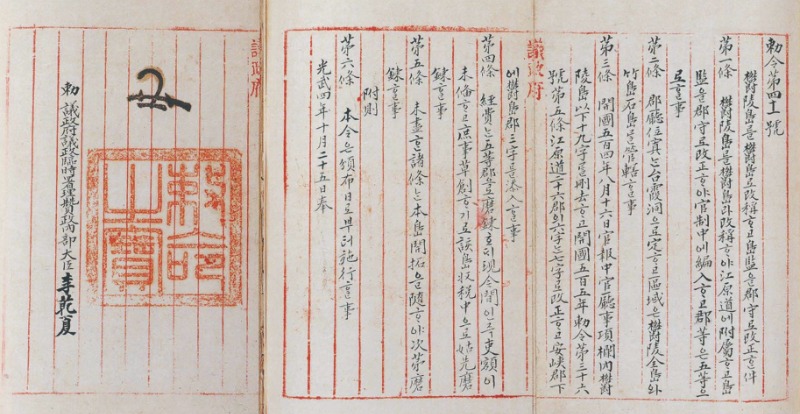 勅令第四十一號
欝陵島를欝島로改稱ᄒᆞ고島監을郡守로改正ᄒᆞᆫ件
第一條 欝陵島를欝島라改稱ᄒᆞ야江原道에附屬ᄒᆞ고島
監을郡守로改正ᄒᆞ야官制中에編入ᄒᆞ고郡等은五等으
로ᄒᆞᆯ事
第二條 郡廳位寘ᄂᆞᆫ台霞洞으로定ᄒᆞ고區域은欝陵全島와
竹島石島를管轄ᄒᆞᆯ事
第三條 開國五百四年八月十六日官報中官廳事項欄內欝
陵島以下十九字를刪去ᄒᆞ고開國五百五年勅令第三十六
號第五條江原道二十六郡의六字ᄂᆞᆫ七字로改正ᄒᆞ고安峽郡下
에欝島郡三字를添入ᄒᆞᆯ事
第四條 經費ᄂᆞᆫ五等郡으로磨鍊호ᄃᆡ現今間인즉吏額이
未備ᄒᆞ고庶事草創ᄒᆞ기로該島收稅中으로姑先磨
鍊ᄒᆞᆯ事
第五條 未盡ᄒᆞᆫ諸條ᄂᆞᆫ本島開拓을隨ᄒᆞ야次第磨
鍊ᄒᆞᆯ事
附則
第六條 本令은頒布日로부터施行ᄒᆞᆯ事
光武四年十月二十五日奉
議政府
勅 議政府議政臨時署理贊政內部大臣李乾夏
勅命之寶
議政府